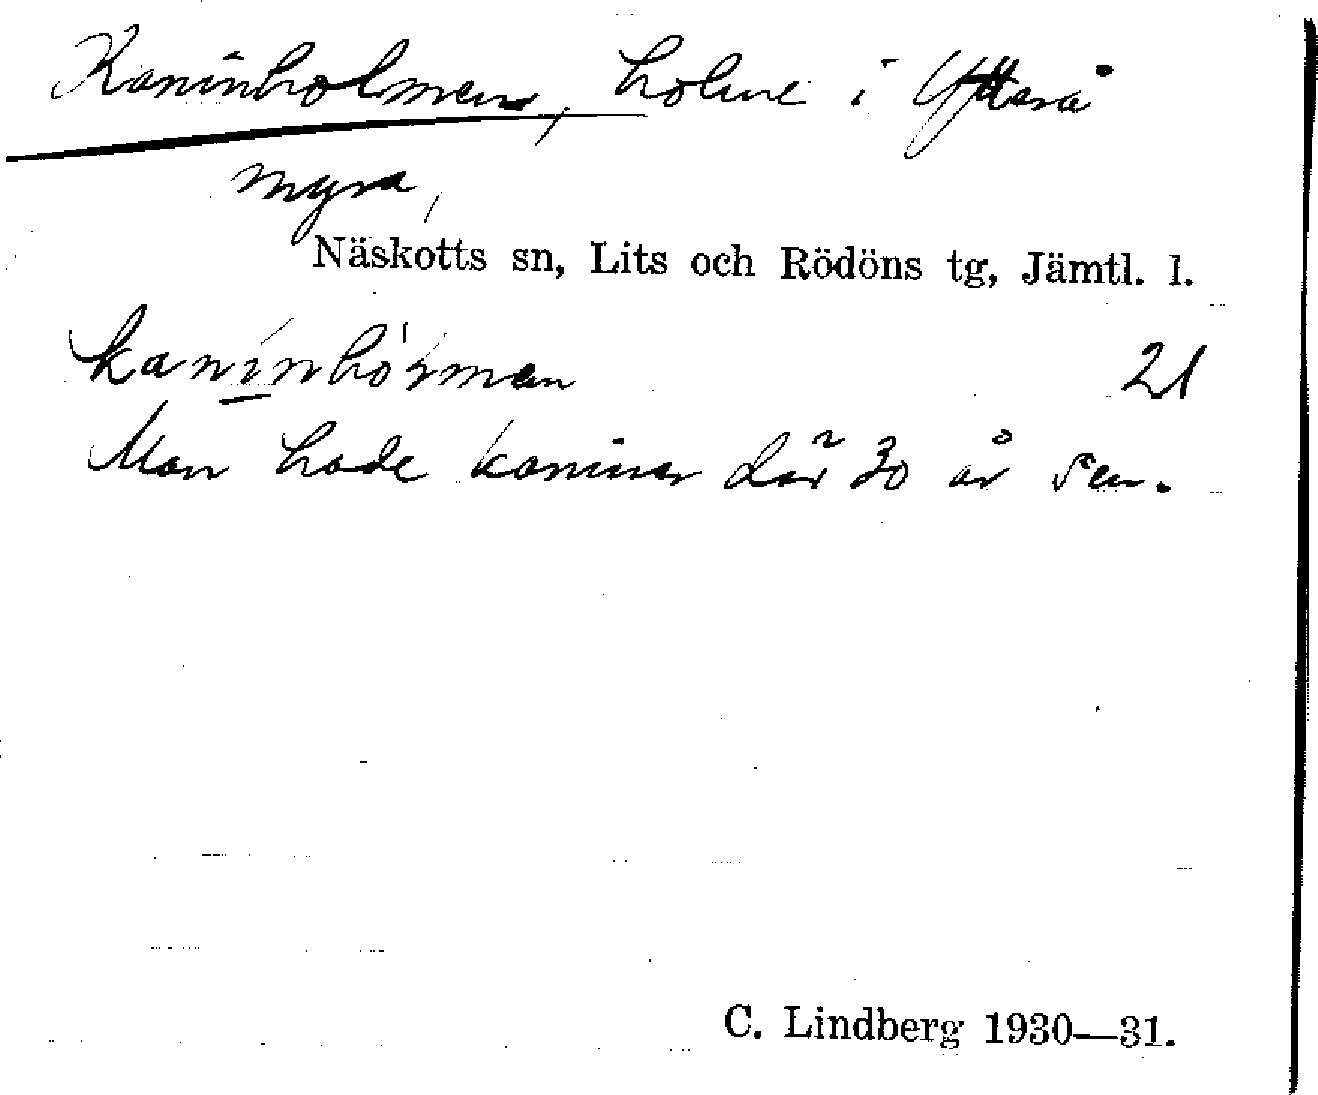 Kaninholmen, holme i Ytterå
myra,
Näskotts sn, Lits och Rödöns tg, Jämtl. l.
kaninhórman 21
Man hade kaniner där 30 år sen.
C. Lindberg 1930—31.